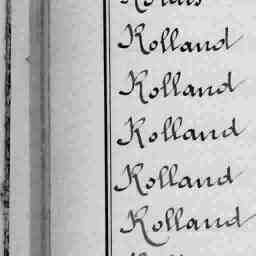 Rolland
Rolland
Rolland
Rolland
Rolland